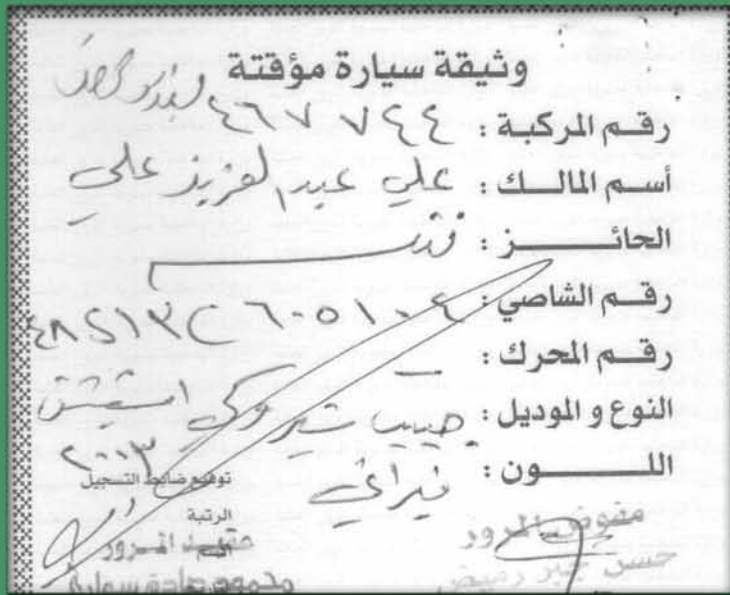 وثيقة سيارة مؤقتة
رقم المركبة : ٤٦٧٧٤٤
أسم المالك : علي عبد العزيز علي
الحائز :
رقم الشاصي : ٤٨S١٣C٦٠٥١٠٤
رقم المحرك : —
النوع و الموديل : جيب شيروكي استيشن
٢٠٠٣
اللون : نيراي
توقيع ضابط التسجيل
الرتبة
الاسم
عقيد المرور
مفوض المرور
حسن جبر رميض